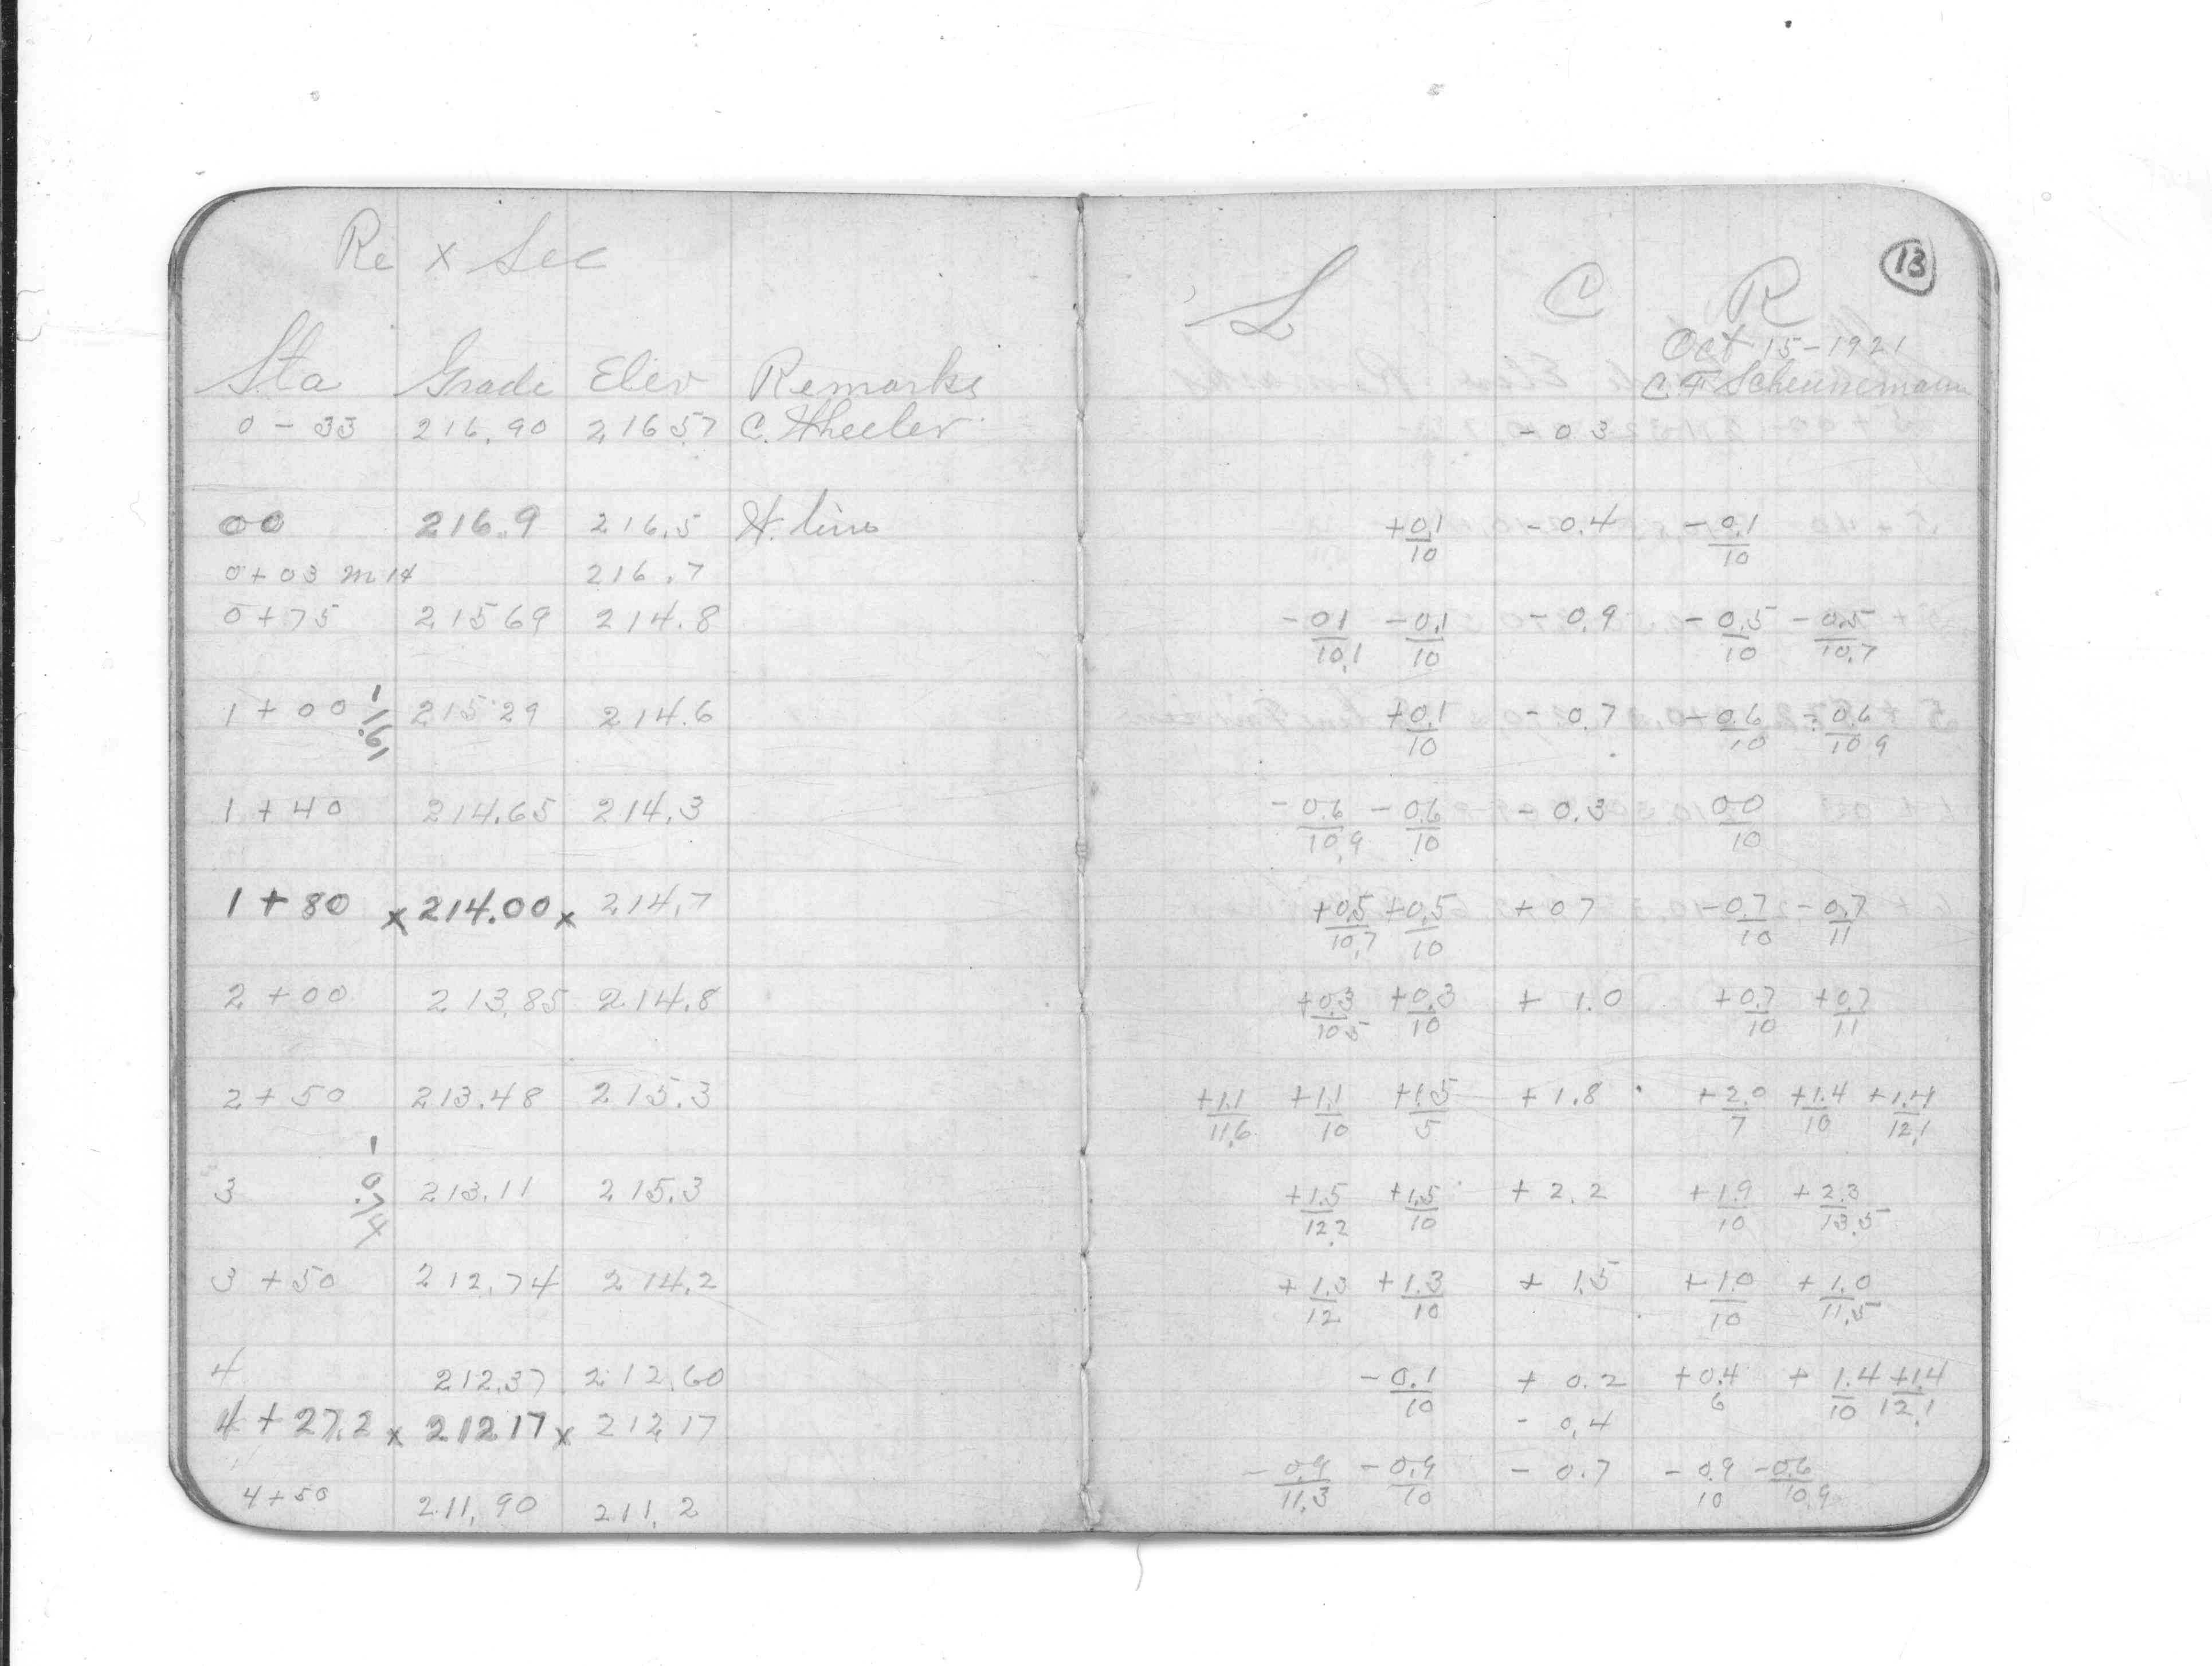 Re x Sec
Sta Grade Elev Remarks
0 - 33 216.90 216.57 C. Wheeler
00 216.9 216.5 H. line
0+03 M 14 216.7
0+75 215 69 214.8
1+00 215 29 214.6
- 1.61
1+40 214.65 214.3
1+80 x 214.00 x 214.7
2+00 213.85 214.8
2+50 213.48 215.3
3 213.11 215.3
- 0.74
3+50 212.74 214.2
4 212.37 212.60
4+27.2 x 212 17 x 212 17
4+50 211.90 211.2
13
L C R
Oct 15-1921
C F Scheunemann
- 0 3
+0.1/10 - 0.4 - 0.1/10
- 01/10.1 - 0.1/10 - 0.9 - 0.5/10 - 0.5/10.7
+0.1/10 - 0.7 - 0.6/10 - 0.6/10 9
- 0.6/10.9 - 0.6/10 - 0.3 00/10
+0.5/10.7 +0.5/10 + 0 7 - 0.7/10 - 0.7/11
+0.3/10 5 +0.3/10 + 1.0 +0.7/10 +0.7/11
+1.1/11.6 +1.1/10 +1.5/5 + 1.8 +2.0/7 +1.4/10 +1.4/12.1
+1.5/12.2 +1.5/10 + 2.2 +1.9/10 +2.3/13.5
+1.3/12 +1.3/10 + 1.5 +1.0/10 +1.0/11.5
- 0.1/10 + 0.2 +0.4/6 + 1.4/10 +1.4/12.1
- 0.4
- 0.9/11.3 - 0.9/10 - 0.7 - 0.9/10 - 0.6/10.9